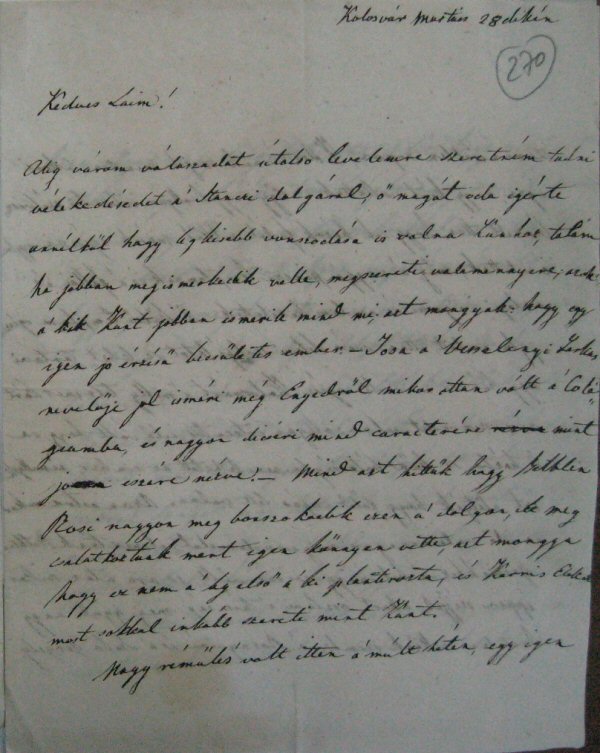 Kolosvár Martius 28dikán
270
Kedves Laim!
Alig várom válaszadat útolso levelemre szeretném tudni
vélekedésedet á Stanczi dolgárol, ö magát oda igérte
annélkül hogy legkisebb vonszodása is volna Kúnhoz, talám
ha jobban megismerkedik velle, megszereti valamennyire, azok
á kik Kúnt jobban ismerik mind mi, azt mongyák hogy egy
igen jo érzésü becsületes ember. – Josa á Wesselenyi Farkas
nevelöje jol isméri még Enyedröl mikor ottan vólt á Cole
giumba, és nagyon dicséri mind caracterére mint
eszére nezve. – Mind azt hittük hogy Bethlen
Rosi nagyon meg boszszonkodik ezen á dolgon, de meg
csalatkoztunk mert igen könnyen vette, azt mongya
hogy ez nem á legelsö á ki plantirozta, és
most sokkal inkább szereti mint Kúnt.
Nagy rémülés volt itten á múlt héten, egy igen